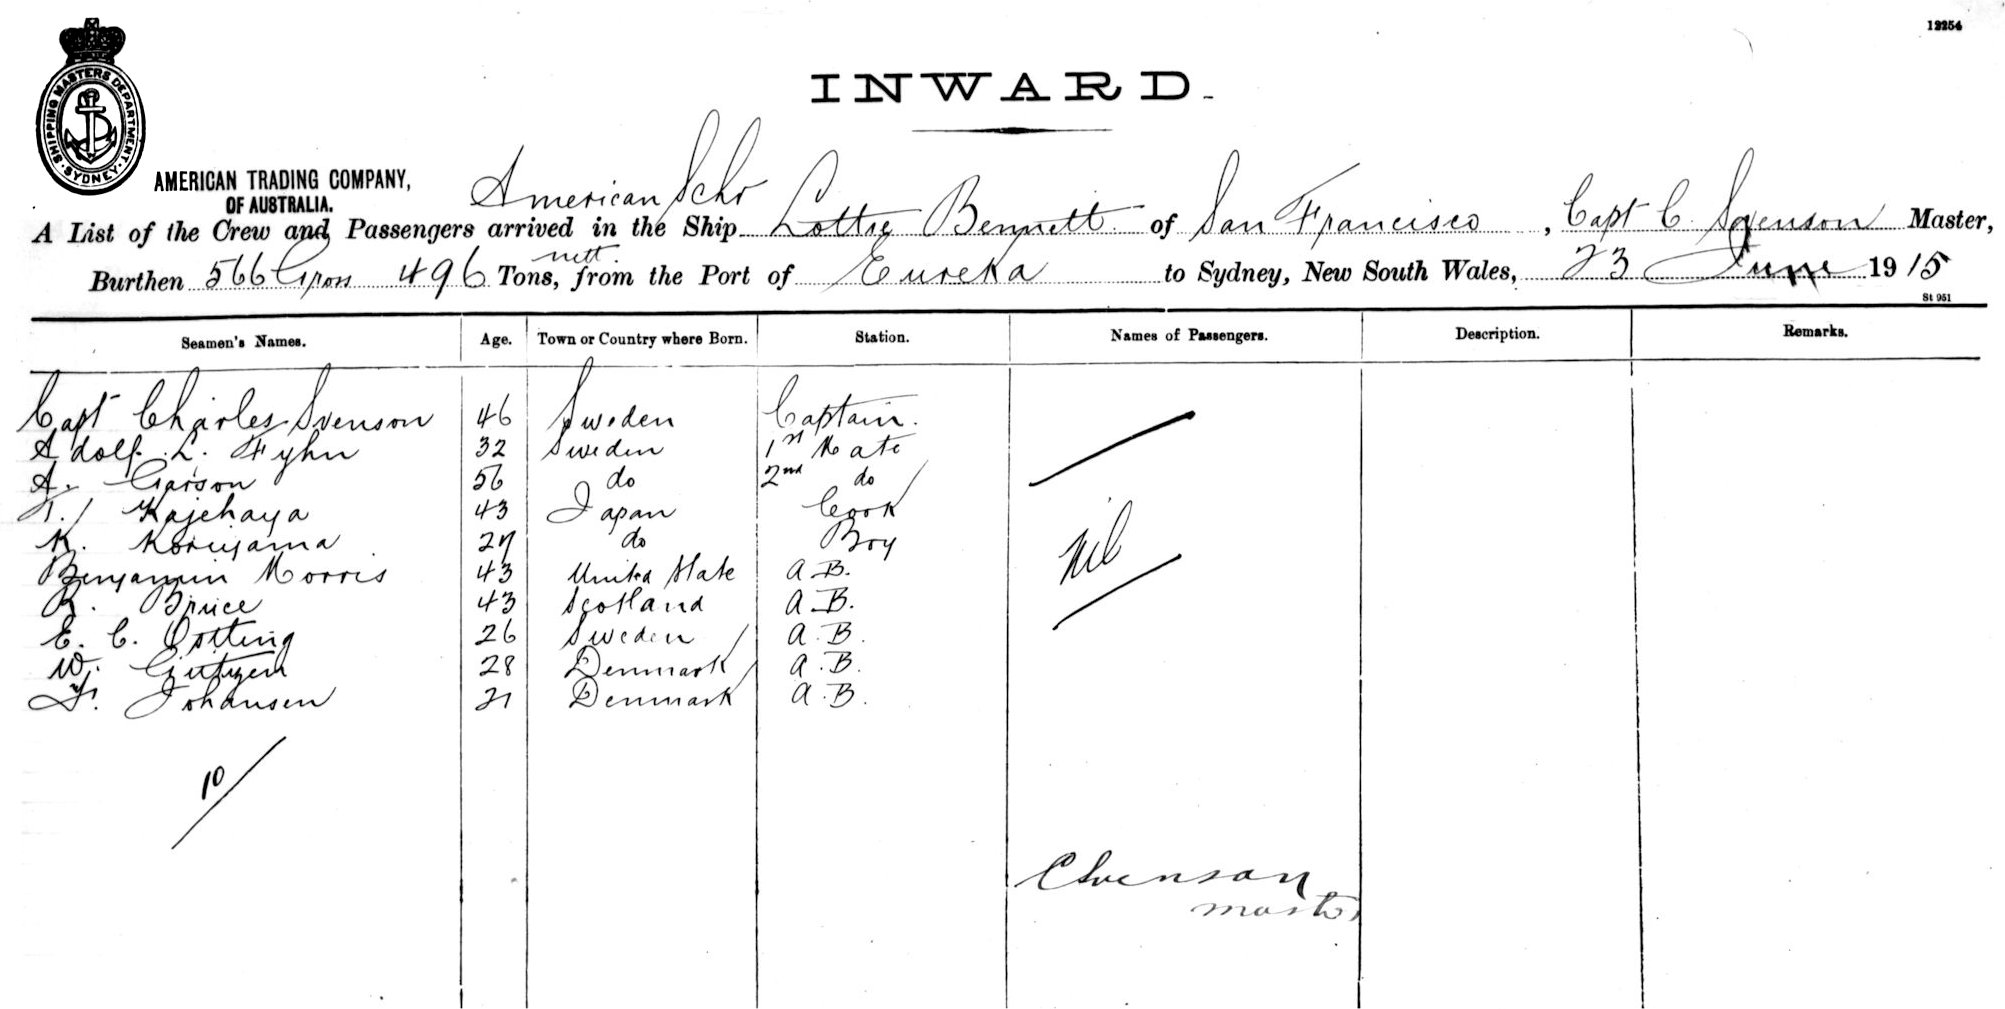 12254
INWARD.
SHIPPING MASTERS DEPARTMENT. SYDNEY
AMERICAN TRADING COMPANY,
OF AUSTRALIA.
American Schr
A List of the Crew and Passengers arrived in the Ship Lottie Bennett of San Francisco, Capt C. Svenson Master,
nett.
Burthen 566 Gross 496 Tons, from the Port of Eureka to Sydney, New South Wales, 23 June 1915
St 951
Seamen's Names. Age. Town or Country where Born. Station. Names of Passengers. Description. Remarks.
Capt Charles Svenson 46 Sweden Captain.
Adolf. L. Fyhn 32 Sweden 1st Mate
A. Garson 56 do 2nd do
T. Kajehaya 43 Japan Cook
K. Koruyama 27 do Boy
Nil
Benjamin Morris 43 United State A.B.
R. Bruce 43 Scotland A.B.
E. C. Ostling 26 Sweden A.B.
W. 28 Denmark A.B.
Johansen 21 Denmark A.B.
10
C Svenson
master